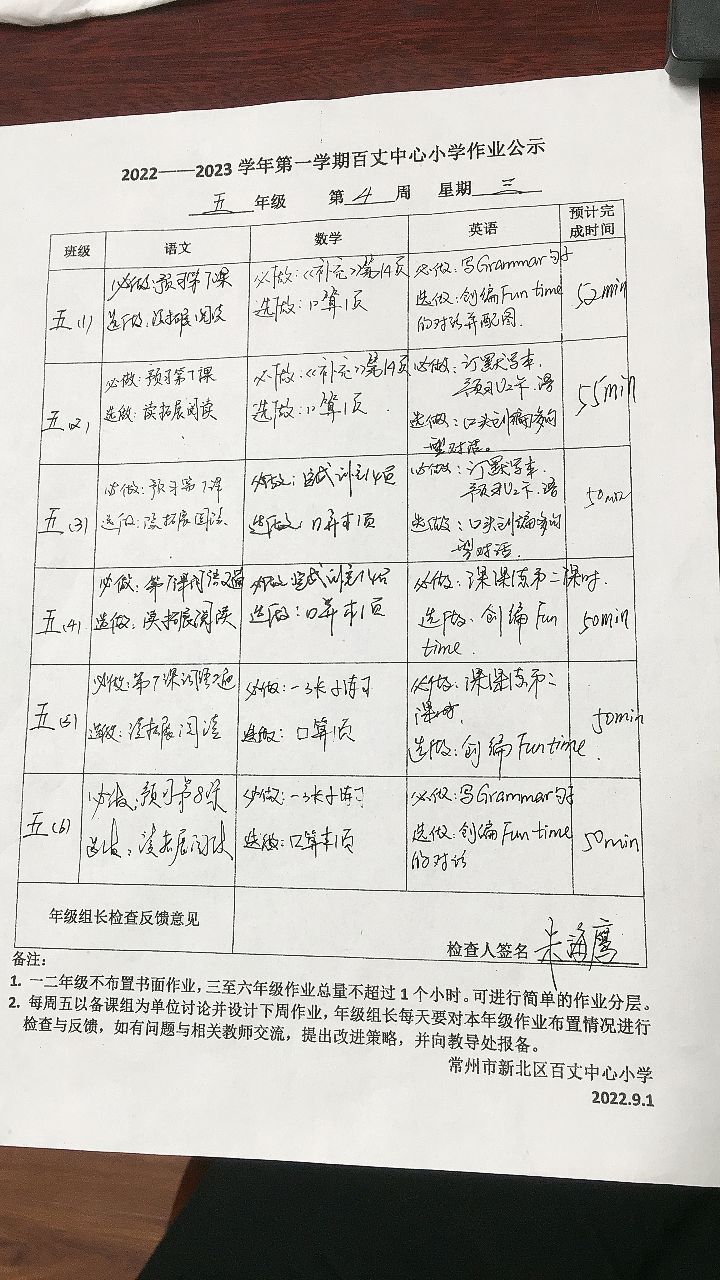 2022——2023 学年第一学期百丈中心小学作业公示
五 年级 第 4 周 星期 三
班级 语文 数学 英语 预计完成时间
五(1)
必做:预习第7课
选做:读拓展阅读
必做:《补充》第14页
选做:口算1页
必做:写Grammar句子
选做:创编Fun time
的对话并配图.
52min
五(2)
必做:预习第7课
选做:读拓展阅读
必做:《补充》第14页
选做:口算1页
必做:订默写本.
预习U2卡.
选做:口头创编
对话。
55min
五(3)
必做:预习第7课
选做:读拓展阅读
必做:
选做:口算本1页
必做:订默写本.
预习U2卡.
选做:口头创编
对话.
50min
五(4)
必做:第7课词语2遍
选做:读拓展阅读
必做:
选做:口算本1页
必做:课课练第二课时.
选做:创编Fun
time.
50min
五(5)
必做:第7课词语2遍
选做:读拓展阅读
必做:一张小练习
选做:口算1页
必做:课课练第二
课时.
选做:创编Fun time.
50min
五(6)
必做:预习第8课
选做:读拓展阅读
必做:一张小练习
选做:口算本1页
必做:写Grammar句子
选做:创编Fun time
的对话
50min
年级组长检查反馈意见
检查人签名 朱海鹰
备注:
1. 一二年级不布置书面作业,三至六年级作业总量不超过 1 个小时。可进行简单的作业分层。
2. 每周五以备课组为单位讨论并设计下周作业,年级组长每天要对本年级作业布置情况进行
检查与反馈,如有问题与相关教师交流,提出改进策略,并向教导处报备。
常州市新北区百丈中心小学
2022.9.1